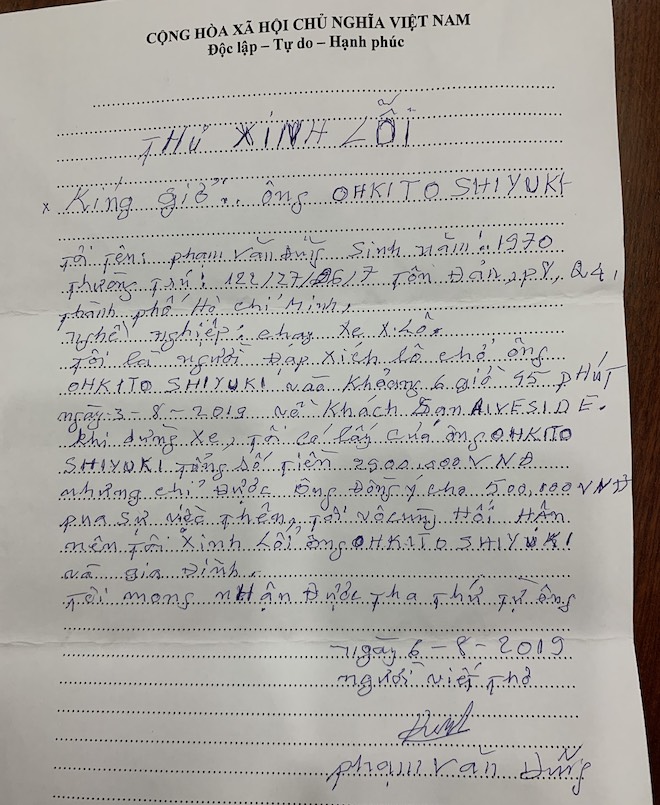 CỘNG HÒA XÃ HỘI CHỦ NGHĨA VIỆT NAM
Độc lập – Tự do – Hạnh phúc
THƯ XINH LỖI
x Kíng giở.. ông OHKITO SHIYUKI
Tôi tên: phạm văn Dũng Sinh năm: 1970
thường trú: 122/27/26/7 Tôn Đản, p8, Q4,
thành phố Hồ chí Minh,
nghề nghiệp: chạy xe xLô.
tôi là người Đạp xích lô chở ông
OHKITO SHIYUKI vào khoảng 6 giờ 45 phút
ngày 3-8-2019 về khách sạn RIVESIDE.
khi dừng xe, tôi có lấy của ông OHKITO
SHIYUKI tổng số tiền 2900.000 VNĐ
nhưng chỉ được ông đồng ý cho 500,000 VNĐ
qua sự việc trên, tôi vô cùng Hối Hận
nên tôi xinh Lỗi ông OHKITO SHIYUKI
và gia Đình.
tôi mong nhận được tha thứ từ ông
ngày 6-8-2019
người viết thơ
phạm văn Dũng